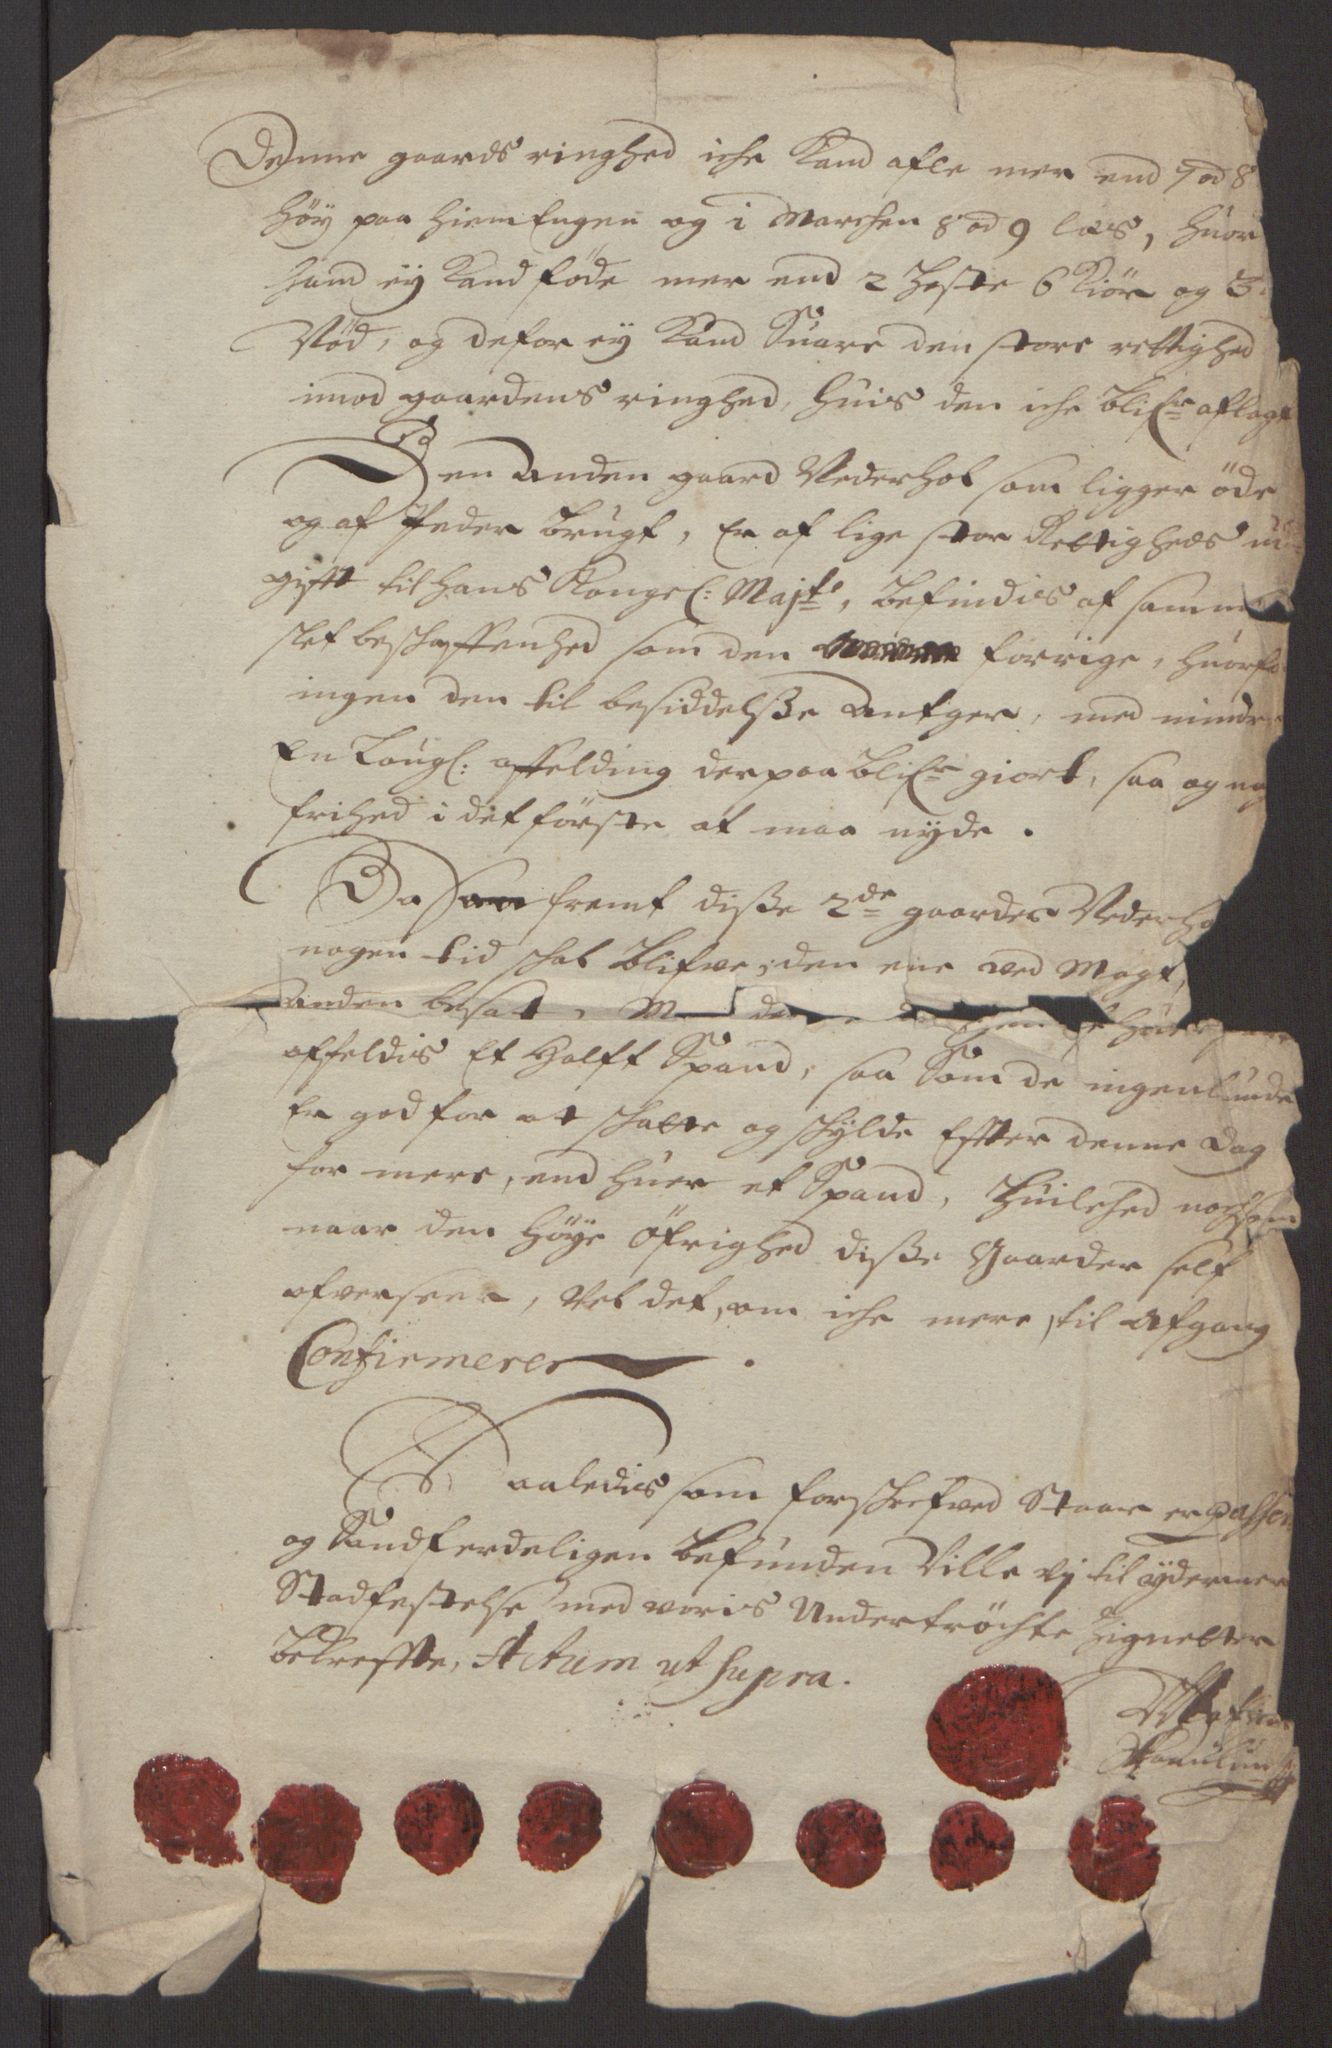 Denne gaards ringhed iche Kand afle mer end 7 od 8
höy paa hiem Engen og i Marchen 8 od 9 læs, huor
hand ey Kand föde mer end 2 heste 6 Kiör og 3
Nöd, og defor ey Kand Suare den store rettighed
imod gaardens ringhed, huis den iche blifr aflagt
Den Anden gaard Vederhol som ligger öde
og af Peder brugt, Er af lige stor Rettigheds
gifft til Hans Kongel: Majts, befindis af samme
slet beschaffenhed som den forrige, huorfo
ingen den til besiddelsße Antager, med mindre
En Lougl: affelding derpaa blifr giort, saa og
frihed i det förste at maa nyde.
Da saa fremt disße 2de gaarder Vederho
nogen tid schal blifve, den ene ved Magt,
Anden besat,
affeldis Et Halft Spand, saa Som de ingenlunde
Er god for at schatte og schylde Effter denne Dag
for mere, end huer et Spand, huilched nochsom
naar den Höye Öfrighed disße Gaarder self
afverseer, Vel det, om iche mere, til Afgang
Confirmerer
Saaledis som forschrefved Staar er Passeret
og Sandferdeligen befunden Ville vj til ydermere
Stadfestelse med voris Undertröchte Zignetter
bekreffte, Actum ut supra.